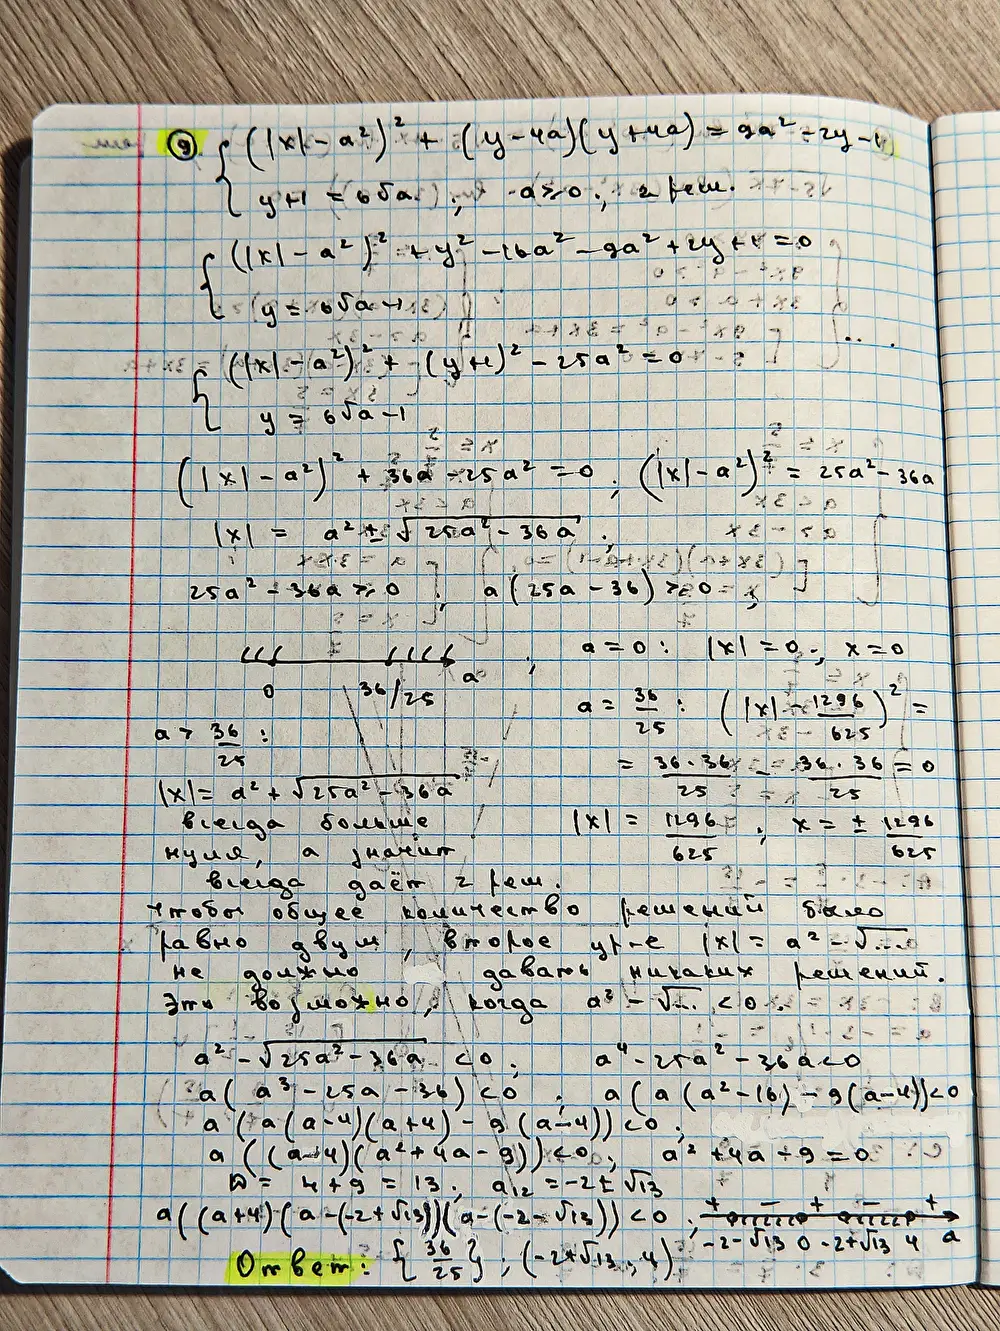 9 (|x| - a²)² + (y - 4a)(y + 4a) = 9a² - 2y - 1
y + 1 = 6√a ; a ≥ 0 ; 2 реш.
(|x| - a²)² + y² - 16a² - 9a² + 2y + 1 = 0
y = 6√a - 1
(|x| - a²)² + (y+1)² - 25a² = 0
y = 6√a - 1
(|x| - a²)² + 36a - 25a² = 0 ; (|x| - a²)² = 25a² - 36a
|x| = a² ± √(25a² - 36a) ;
25a² - 36a ≥ 0 ; a(25a - 36) ≥ 0 ;
0 36/25 a ; a = 0 : |x| = 0 ; x = 0
a = 36/25 : (|x| - 1296/625)² =
= 36·36/25 - 36·36/25 = 0
|x| = 1296/625 ; x = ± 1296/625
a > 36/25 :
|x| = a² + √(25a² - 36a)
всегда больше
нуля, а значит
всегда даёт 2 реш.
Чтобы общее количество решений было
равно двум, второе ур-е |x| = a² - √...
не должно давать никаких решений.
Это возможно, когда a² - √... < 0.
a² - √(25a² - 36a) < 0 ; a⁴ - 25a² - 36a < 0
a(a³ - 25a - 36) < 0 ; a(a(a² - 16) - 9(a - 4)) < 0
a(a(a-4)(a+4) - 9(a-4)) < 0 ;
a((a-4)(a² + 4a - 9)) < 0 ; a² + 4a + 9 = 0
D = 4 + 9 = 13 ; a₁₂ = -2 ± √13
a((a+4)(a - (-2+√13))(a - (-2-√13)) < 0 ; + - + - +
-2-√13 0 -2+√13 4 a
Ответ: {36/25} ; (-2+√13 ; 4)